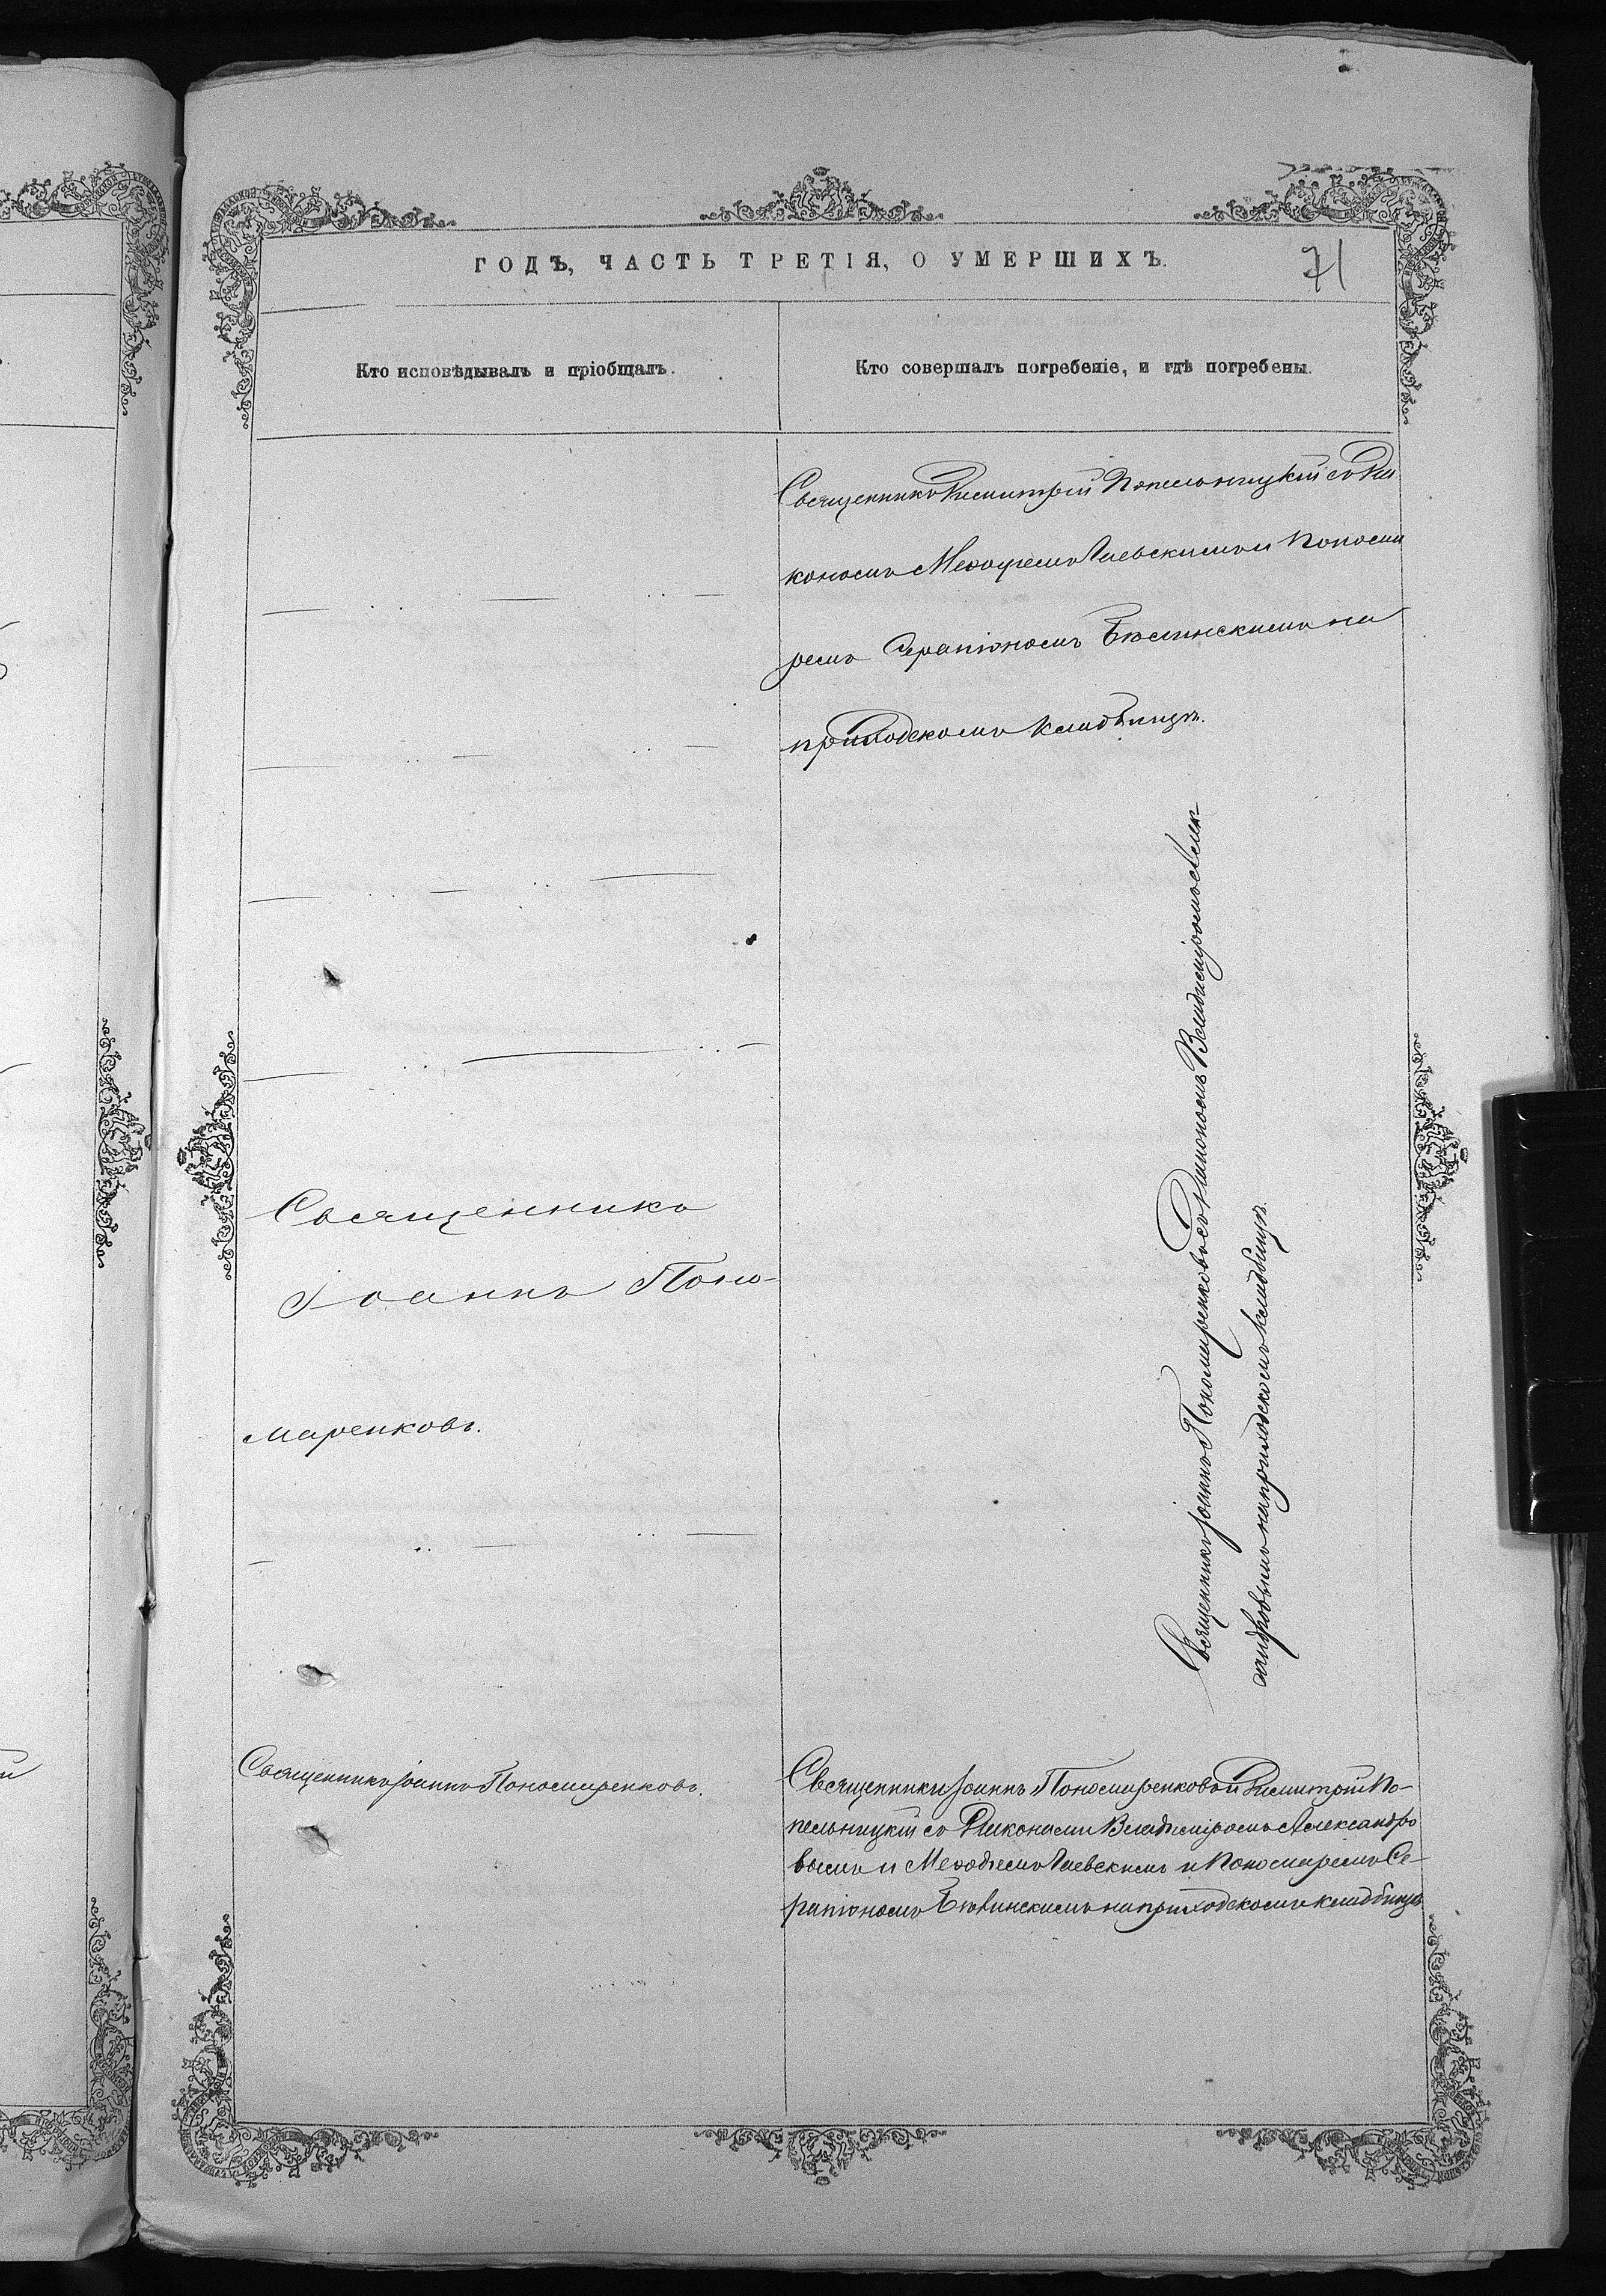 ГОДЪ, ЧАСТЬ ТРЕТІЯ, О УМЕРШИХЪ.
71
Кто исповѣдывалъ и пріобщалъ.
Кто совершалъ погребеніе, и гдѣ погребены.
Священникъ Димитрій Попельницкій съ Діа
кономъ Меѳодіемъ Лаевскимъ и Пономи
ремъ Серапіономъ на
приходскомъ кладбищѣ.
Священникъ
Іоаннъ Поно-
маренковъ.
Священникъ Іоаннъ Пономаренковъ съ Діакономъ Владиміромъ Алек-
сандровымъ на приходскомъ кладбищѣ.
Священникъ Іоаннъ Пономаренковъ.
Священники Іоаннъ Пономаренковъ и Димитрій По-
пельницкій съ Діаконами Владиміромъ Александро
вымъ и Меѳодіемъ Лаевскимъ и Пономаремъ Се-
рапіономъ на приходскомъ кладбищѣ